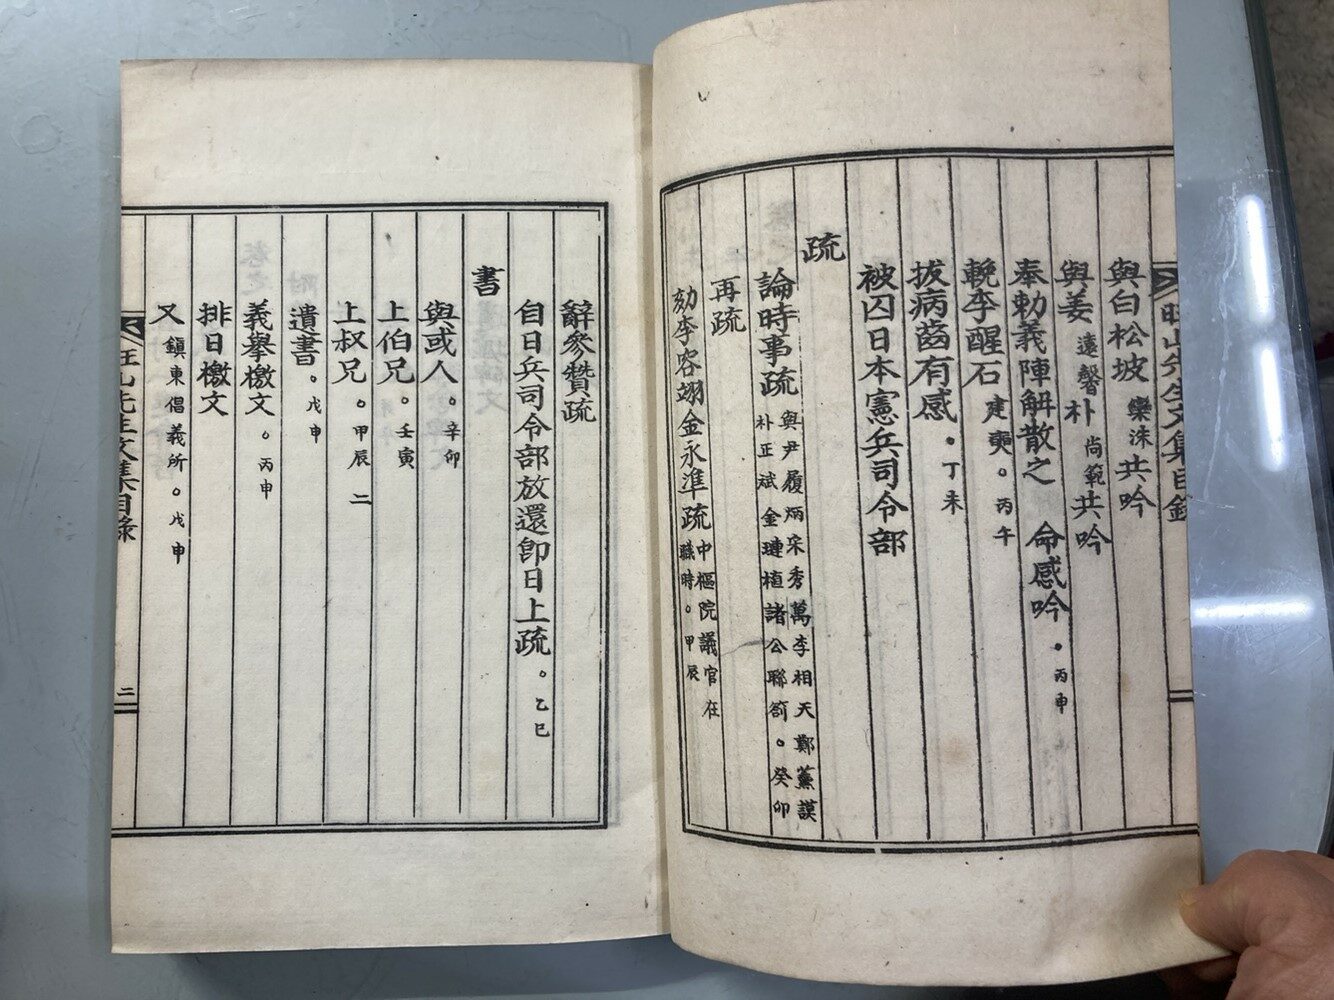 旺山先生文集目錄
與白松坡樂洙共吟
與姜遠馨朴尙範共吟
奉勅義陣解散之 命感吟。丙申
輓李醒石建奭。丙午
拔病齒有感。丁未
被囚日本憲兵司令部
疏
論時事疏 與尹履炳宋秀萬李相天鄭薰謨朴正斌金璉植諸公聯笏。癸卯
再疏
劾李容翊金永準疏 中樞院議官在職時。甲辰
辭參贊疏
自日兵司令部放還卽日上疏。乙巳
書
與或人。辛卯
上伯兄。壬寅
上叔兄。甲辰 二
遺書。戊申
義擧檄文。丙申
排日檄文
又 鎭東倡義所。戊申
旺山先生文集目錄 二